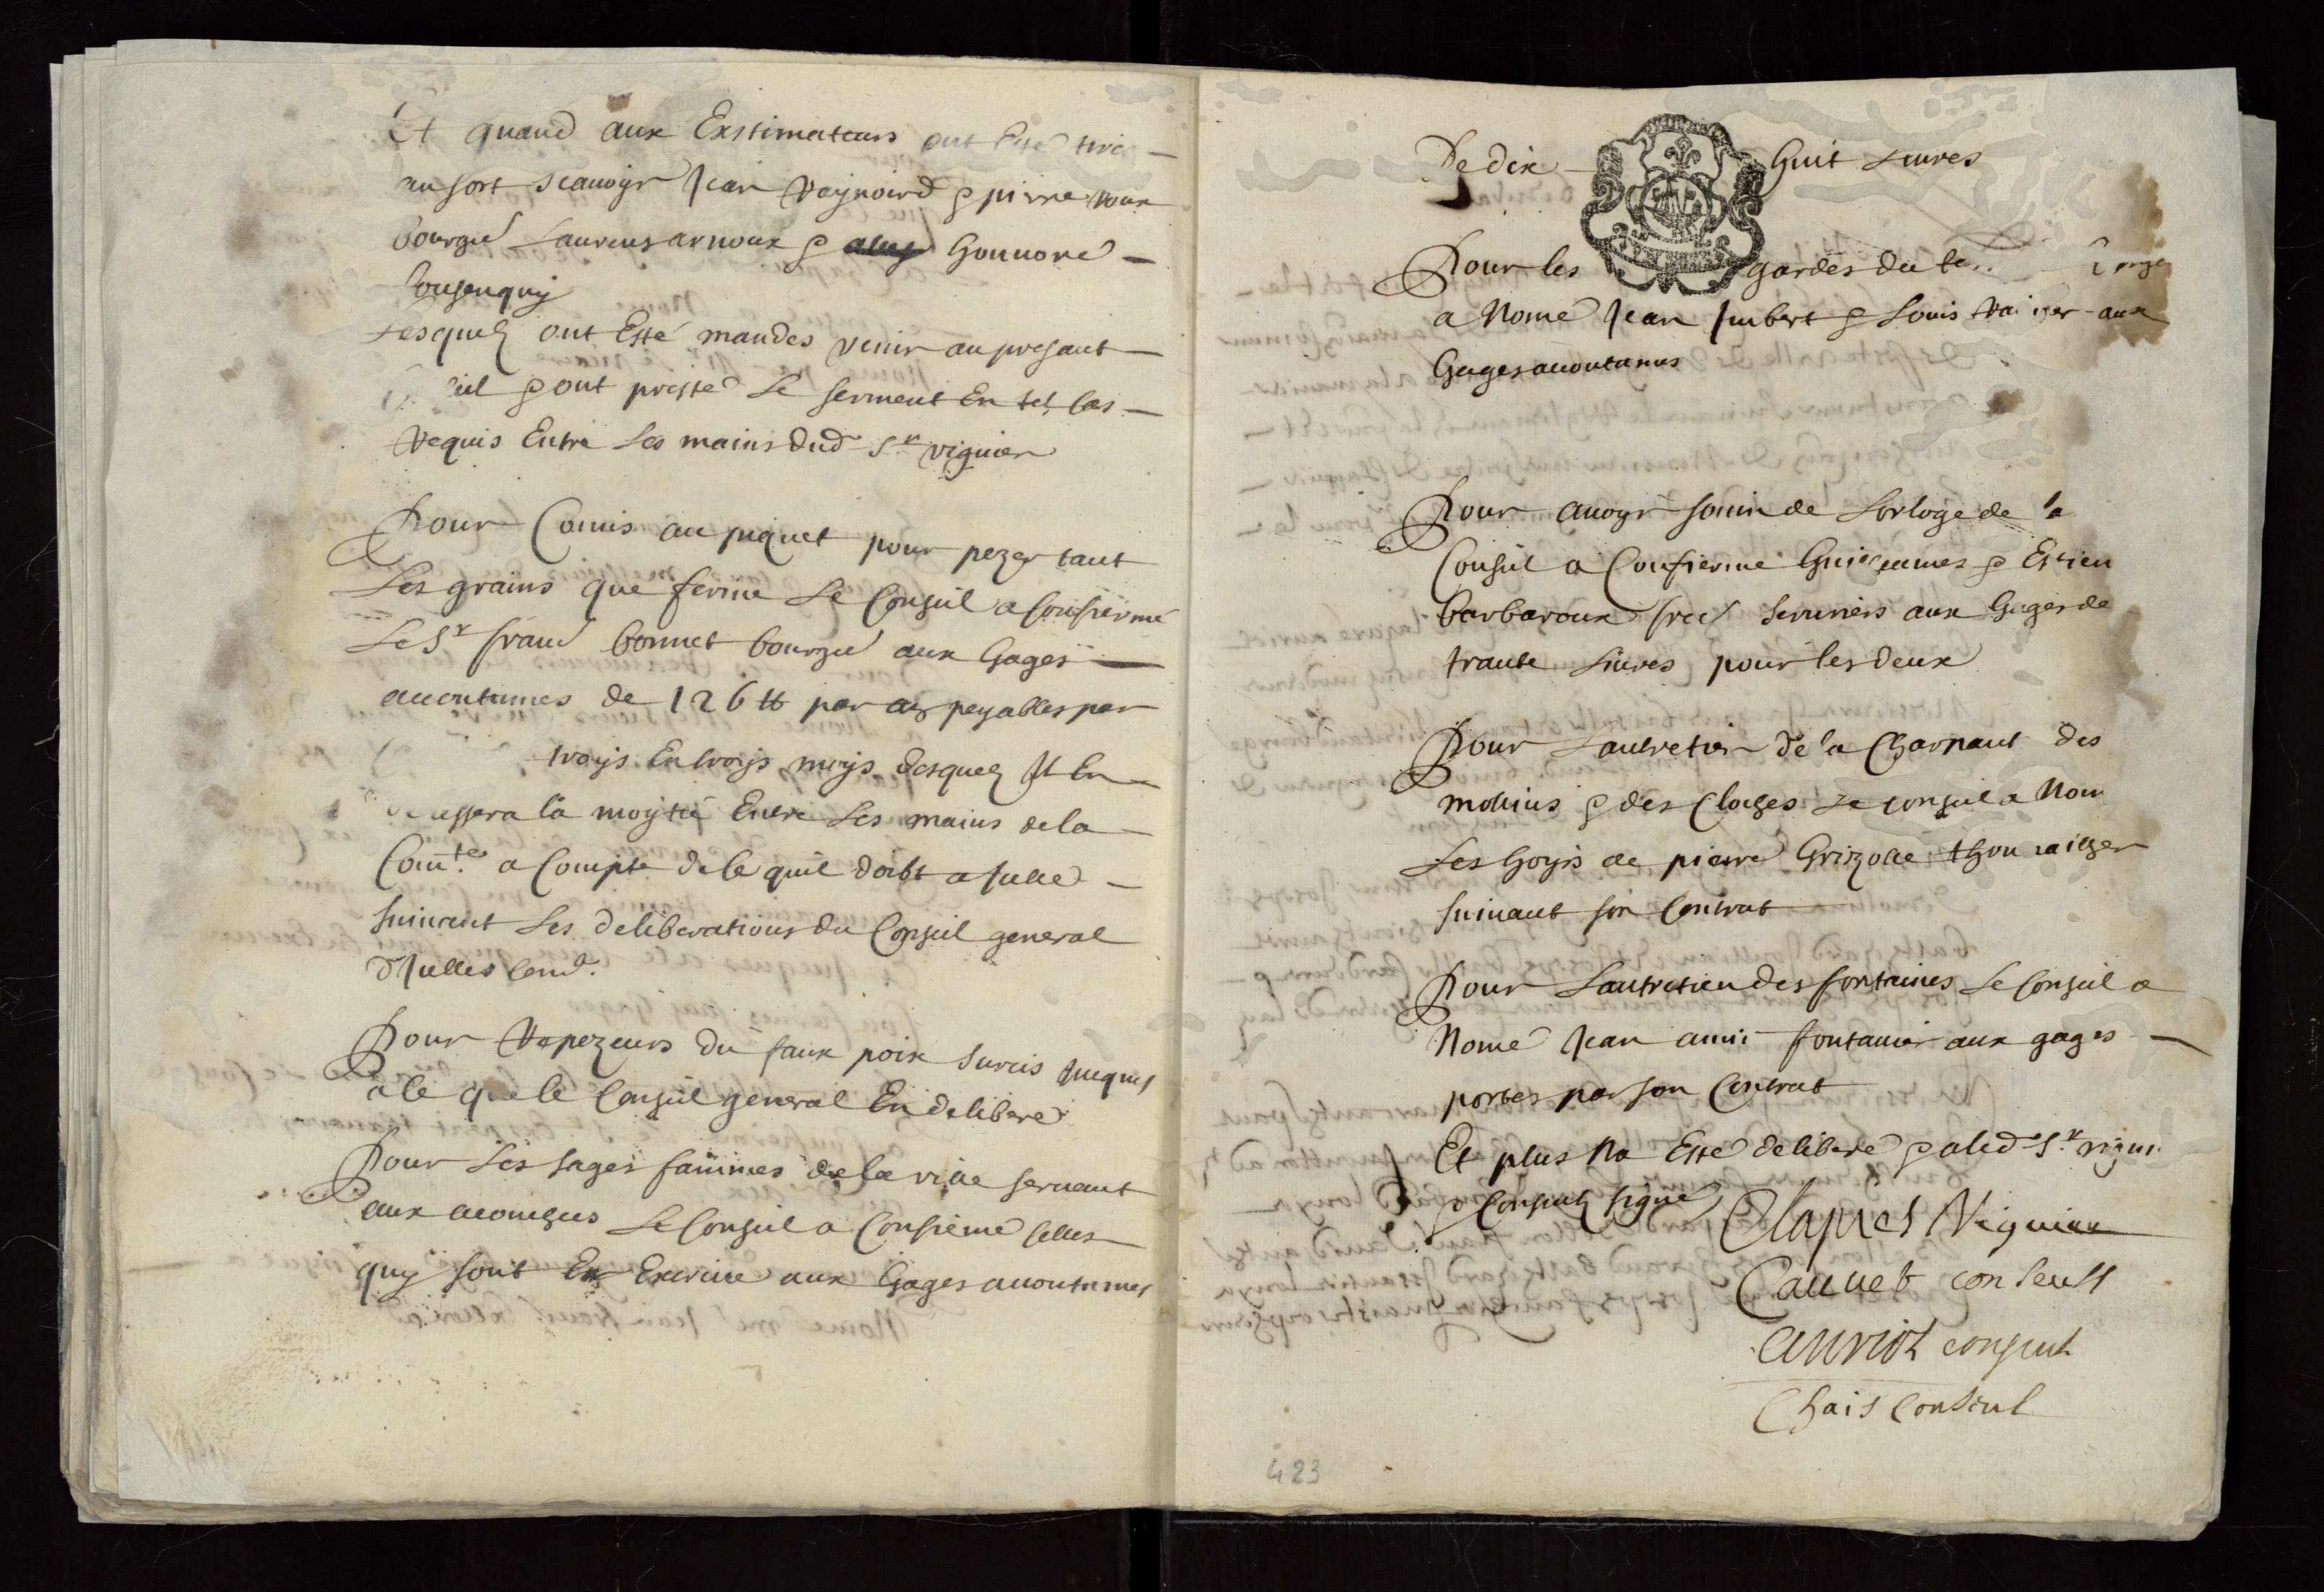 Et quand aux Exstimateurs ont Esté tirés
au sort scauoyr Jean Raynoird & pierre roux
bourgs Laurens arnoux & Honnoré
Lesquels ont Esté mandes venir au presant
& ont presté Le serment En tel cas
Requis Entre Les mains dud Sr viguier
Pour Comis au piquet pour pezer tant
Les grains que ferine Le Conseil a Confiermé
Le Sr fraud bonnet bourgs aux Gages
acoutumes de 126 tt par an payables par
troys En troys moys desquels Il En
la moytié Entre Les mains de la
Comte a Compte de ce quil doibt a Jcelle
suiuant Les deliberations du Conseil general
d'Jcelles
Pour Repezeurs du faux poix surcis Jucques
a ce que le Conseil general En delibere
Pour Les sages fammes de la ville seruant
aux acouchés Le Conseil a Confiermé celles
quy sont En Exercice aux Gages acoutumes
De dix Huit Liures
Pour les gardes du
a Nomé Jean Jmbert & Louis aux
Gages acoutumes
Pour auoyr souin de Lorloge de la
Conseil a Confiermé Guilheumes & Estien
barbaroux serruriers aux Gages de
trante Liures pour les deux
Pour Lautretien de la des
molins & des Cloches Le conseil a Nom
Les Hoyrs de pierre Grizolle
suiuant son Contrat
Pour Lautretien des fontaines Le Conseil a
Nomé Jean amic fontanier aux gages
portes par son Contrat
Et plus Na Esté deliberé & a led Sr vigui
& Consuls signé
Clapiers Viguier
Caunet conseull
auriol consul
Chais Conseul
423